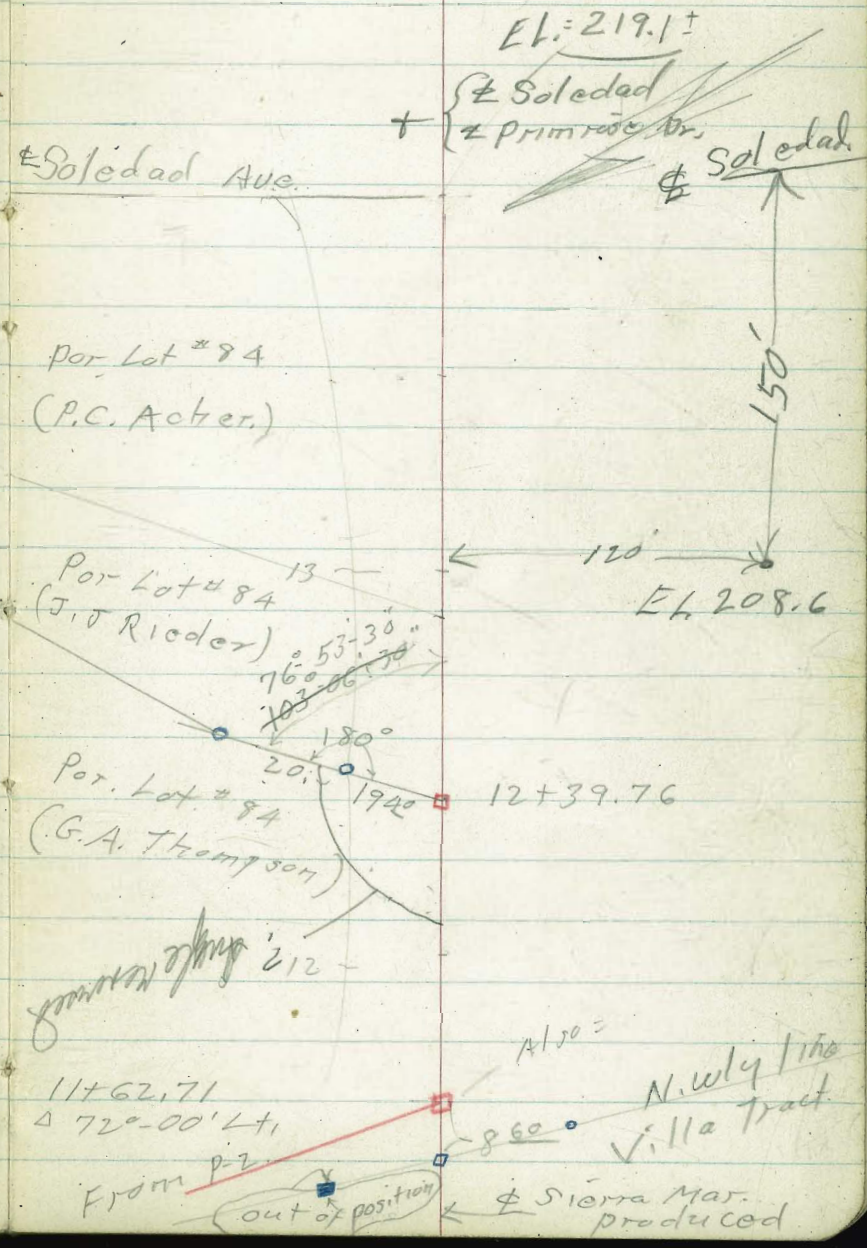 EL. = 219.1±
+ { ℄ Soledad
℄ Primrose Dr.
℄ Soledad Ave.
℄ Soledad.
150'
Por Lot #84
(P.C. Acher.)
120'
EL 208.6
Por Lot #84
(J.J Rieder)
13
76°-53'-30"
103°-06'-30"
180°
20.
194°
12+39.76
Por. Lot #84
(G.A. Thompson)
Angle reversed
12
Also =
11+62.71
Δ 72°-00' Lt.
N.wly line
Villa Tract.
8.60
From P-2
out of position
℄ Sierra Mar.
produced